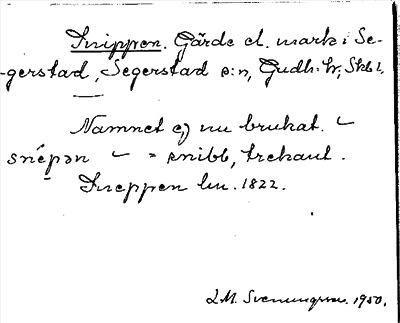 Snippen. Gärde el. mark i Se-
-gerstad, Segerstad s:n, Gudh. hr, Skbl.
Namnet ej nu brukat.
snépən = snibb, trekant.
Sneppen lm. 1822.
L.M. Svenungsson. 1950.